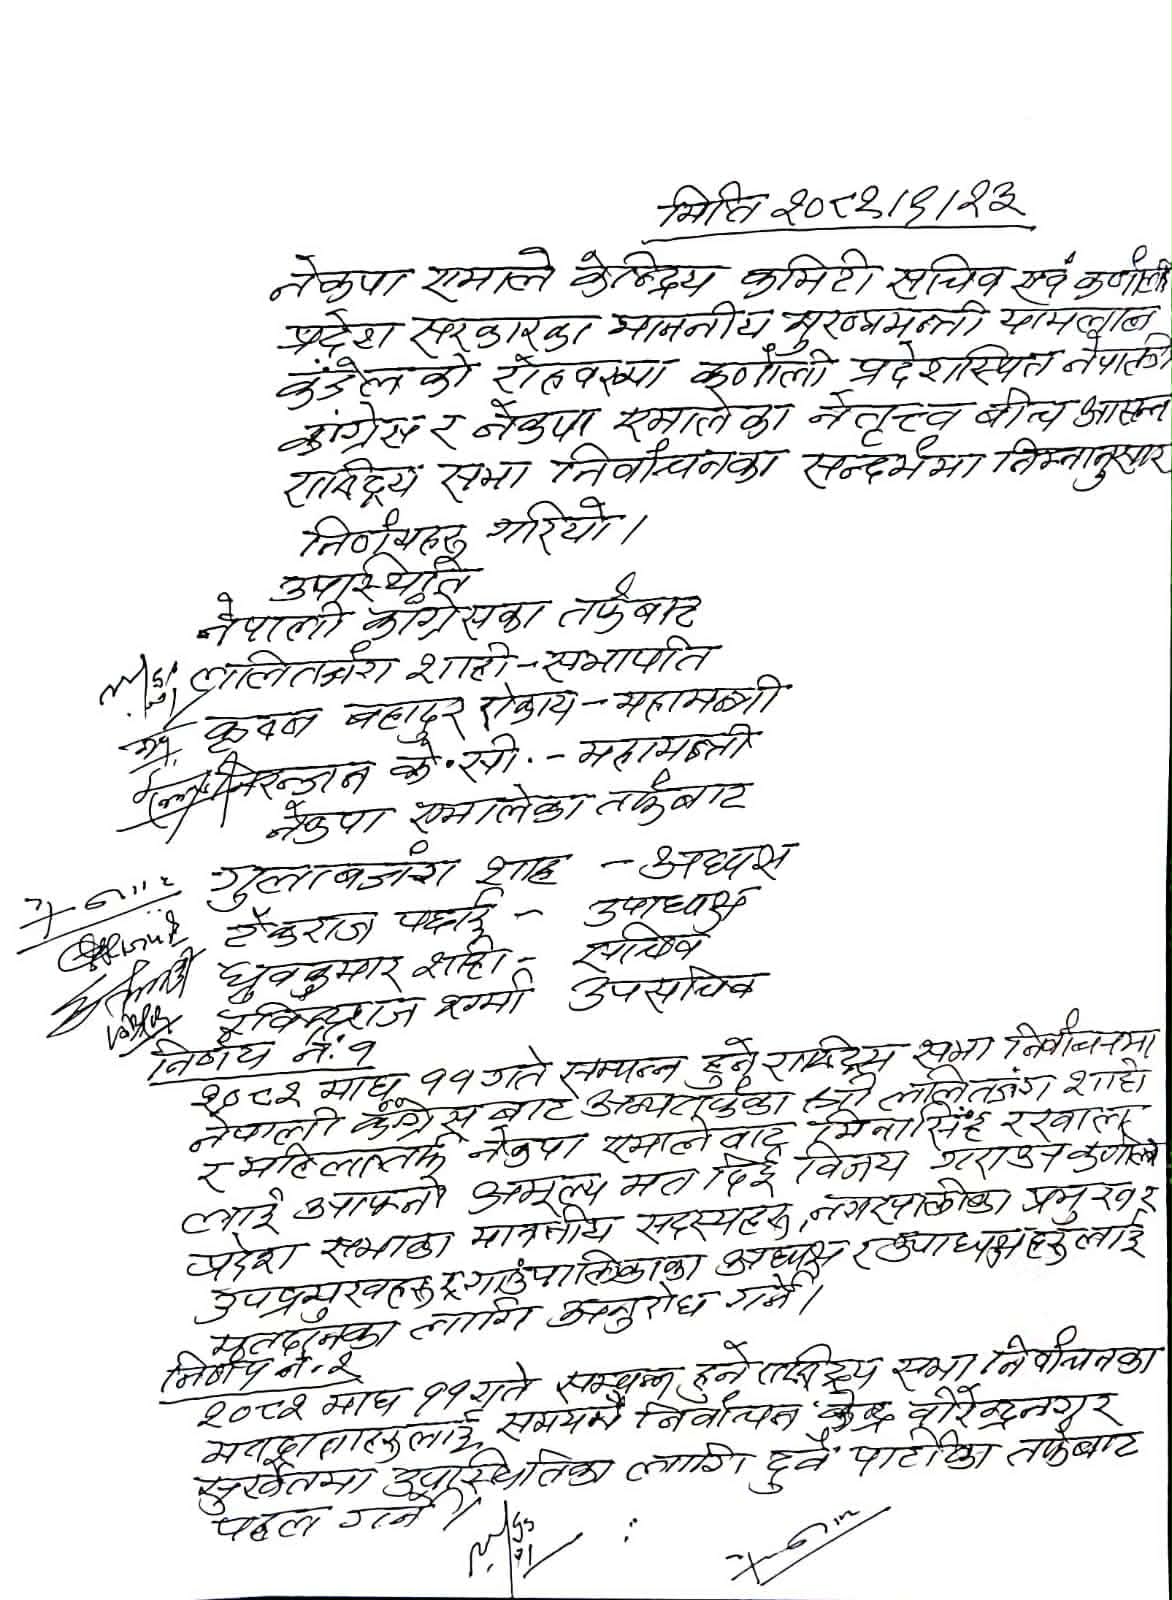 मिति २०८२।९।२३
नेकपा एमाले केन्द्रिय कमिटी सचिव एवं कर्णाली
प्रदेश सरकारका माननीय मुख्यमन्त्री यामलाल
कंडेल को रोहवरमा कर्णाली प्रदेशस्थित नेपाली
कांग्रेस र नेकपा एमालेका नेतृत्त्व बीच आसन्न
राष्ट्रिय सभा निर्वाचनका सन्दर्भमा निम्नानुसार
निर्णयहरु गरियो।
उपस्थिति
नेपाली कांग्रेसका तर्फबाट
ललितजंग शाही - सभापति
कृष्ण बहादुर रोकाय - महामन्त्री
निरन्जन के.सी. - महामन्त्री
नेकपा एमालेका तर्फबाट
गुलाबजंग शाह - अध्यक्ष
टेकराज पछाई - उपाध्यक्ष
ध्रुवकुमार शाही - सचिव
रविन्द्रराज शर्मा उपसचिव
निर्णय नं. १
२०८२ माघ ११ गते सम्पन्न हुने राष्ट्रिय सभा निर्वाचनमा
नेपाली कांग्रेस बाट अन्यतर्फका श्री ललितजंग शाही
र महिलातर्फ नेकपा एमालेबाट मिनासिंह रखाल
लाई आफ्नो अमूल्य मत दिई विजय गराउन कर्णाली
प्रदेश सभाका माननीय सदस्यहरु, नगरपालीका प्रमुख र
उपप्रमुखहरु र गाउंपालिकाका अध्यक्ष र उपाध्यक्षहरुलाई
मतदानका लागि अनुरोध गर्ने।
निर्णय नं. २
२०८२ माघ ११ गते सम्पन्न हुने राष्ट्रिय सभा निर्वाचनका
मतदाताहरुलाई समयमै निर्वाचन केन्द्र वीरेन्द्रनगर
सुर्खेतमा उपस्थितिका लागि दुवै पार्टीका तर्फबाट
पहल गर्ने।